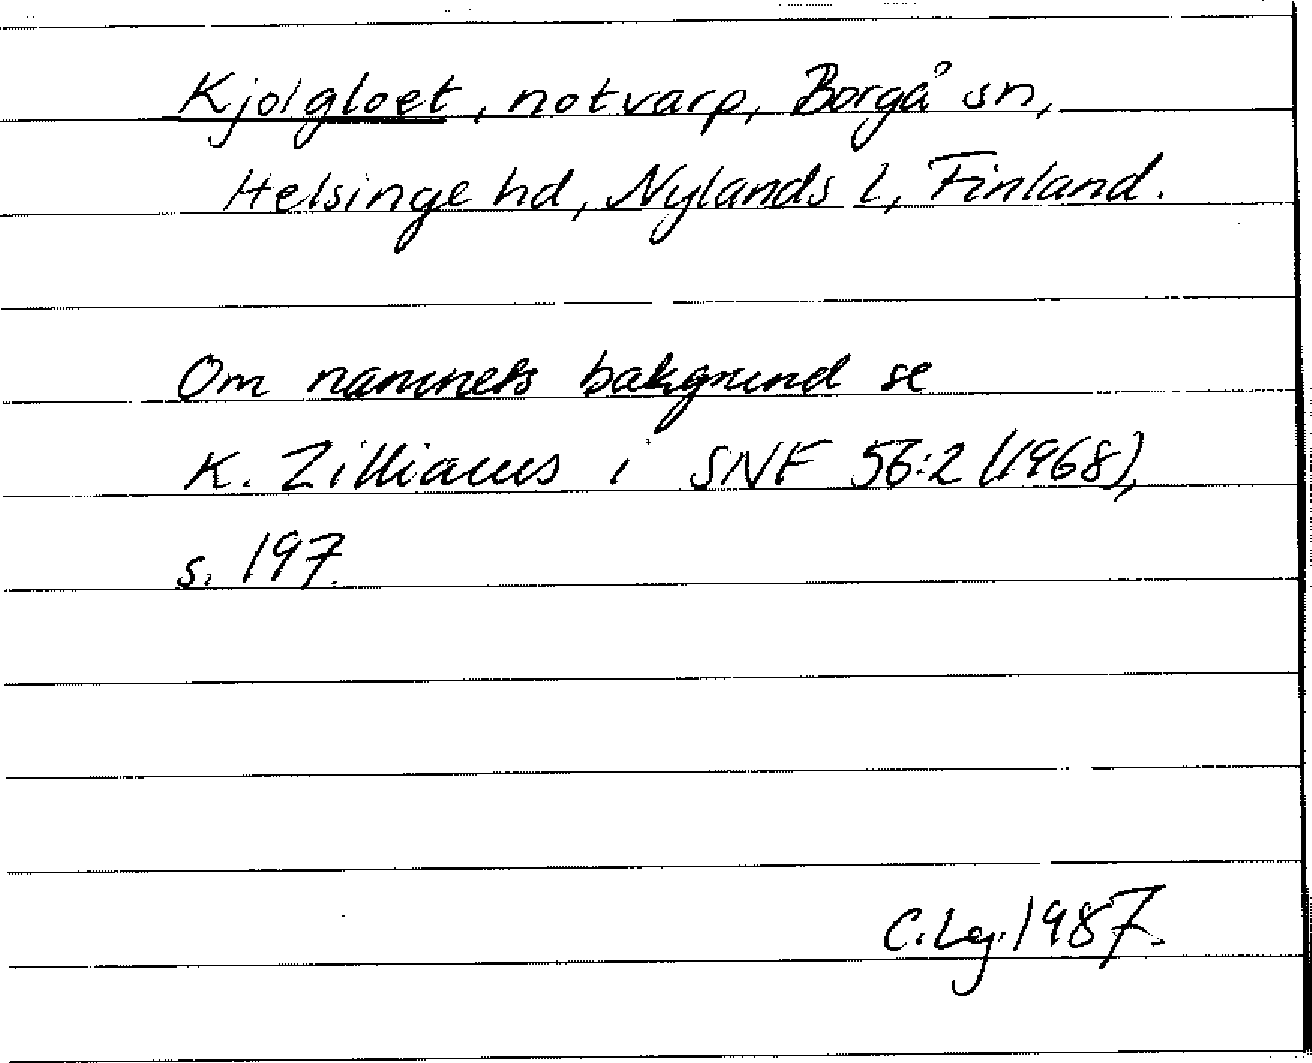 Kjolgloet, notvarp, Borgå sn,
Helsinge hd, Nylands l, Finland.
Om namnets bakgrund se
K. Zilliacus i SNF 56:2 (1968),
s. 197.
C.Lg.1987.